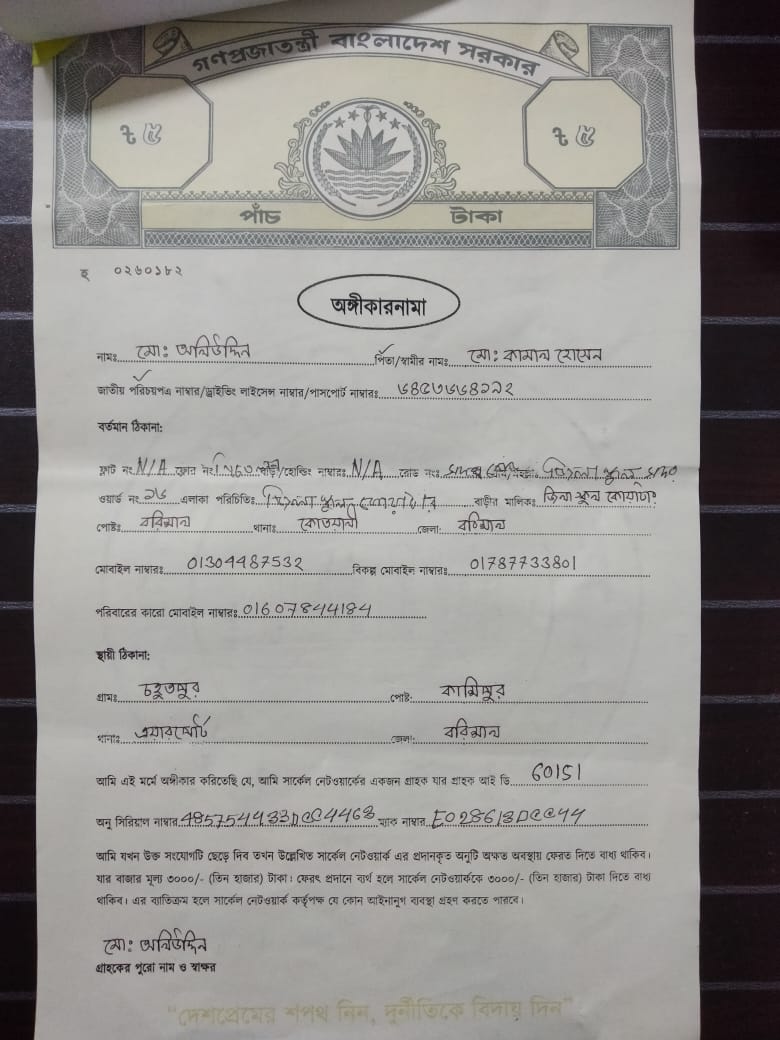 গণপ্রজাতন্ত্রী বাংলাদেশ সরকার
৳ ৫ ৳ ৫
পাঁচ টাকা
হ ০২৬০১৮২
অঙ্গীকারনামা
নামঃ মো: অলিউদ্দিন পিতা/স্বামীর নামঃ মো: কামাল হোসেন
জাতীয় পরিচয়পত্র নাম্বার/ড্রাইভিং লাইসেন্স নাম্বার/পাসপোর্ট নাম্বারঃ
বর্তমান ঠিকানা:
ফ্লাট নং N/A ফ্লোর নং নিচতলা বাড়ী/হোল্ডিং নাম্বারঃ N/A রোড নংঃ জিলা স্কুল
ওয়ার্ড নং ১৬ এলাকা পরিচিতিঃ জিলা স্কুল কোয়ার্টার বাড়ীর মালিকঃ জিলা স্কুল কোয়ার্টার
পোষ্টঃ বরিশাল থানাঃ কোতয়ালী জেলা: বরিশাল
মোবাইল নাম্বারঃ 01304487532 বিকল্প মোবাইল নাম্বারঃ 01787733801
পরিবারের কারো মোবাইল নাম্বারঃ 01607844184
স্থায়ী ঠিকানা:
গ্রামঃ চহুতপুর পোষ্ট: কাশিপুর
থানাঃ এয়ারপোর্ট জেলা: বরিশাল
আমি এই মর্মে অঙ্গীকার করিতেছি যে, আমি সার্কেল নেটওয়ার্কের একজন গ্রাহক যার গ্রাহক আই ডি 60151
অনু সিরিয়াল নাম্বার 485754433DCC4463 ম্যাক নাম্বার E028613DCC44
আমি যখন উক্ত সংযোগটি ছেড়ে দিব তখন উল্লেখিত সার্কেল নেটওয়ার্ক এর প্রদানকৃত অনুটি অক্ষত অবস্থায় ফেরত দিতে বাধ্য থাকিব।
যার বাজার মূল্য ৩০০০/- (তিন হাজার) টাকা। ফেরৎ প্রদানে ব্যর্থ হলে সার্কেল নেটওয়ার্ককে ৩০০০/- (তিন হাজার) টাকা দিতে বাধ্য
থাকিব। এর ব্যতিক্রম হলে সার্কেল নেটওয়ার্ক কর্তৃপক্ষ যে কোন আইনানুগ ব্যবস্থা গ্রহণ করতে পারবে।
মো: অলিউদ্দিন
গ্রাহকের পুরো নাম ও স্বাক্ষর
"দেশপ্রেমের শপথ নিন, দুর্নীতিকে বিদায় দিন"